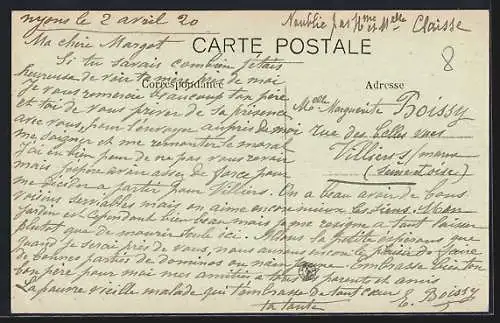 nyons le 2 avril 20
N'oublie pas Mme et Melle Claisse
CARTE POSTALE
8
Ma chère Margot
Si tu savais combien j'étais
heureuse de voir ta mère près de moi
Correspondance
Adresse
Je vous remercie beaucoup ton père
et toi de vous priver de sa présence
avec vous, pour l'envoyer auprès de moi
me soigner et me remonter le moral
J'ai eu bien peur de ne pas vous revoir
mais j'espère avoir assez de force pour
me décider à partir pour Villiers. On a beau avoir de bons
voisins serviables mais on aime encore mieux les siens. Mon
jardin est cependant bien beau mais je me résigne à tout laisser
plutôt que de mourir toute ici. Nous la petite espérons que
quand je serai près de vous, nous aurons encore le plaisir de faire
de bonnes parties de dominos ou nain jaune. Embrasse bien ton
bon père pour moi mes amitiés à tous parents et amis
La pauvre vieille malade qui t'embrasse de tout cœur E. Boissy
ta tante
Melle Marguerite Boissy
rue des belles vues
Villiers s/ marne
(Seine et Oise)